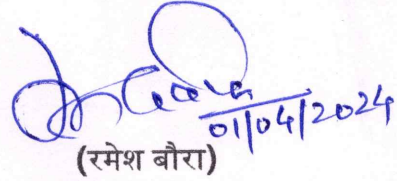 01/04/2024
(रमेश बौरा)